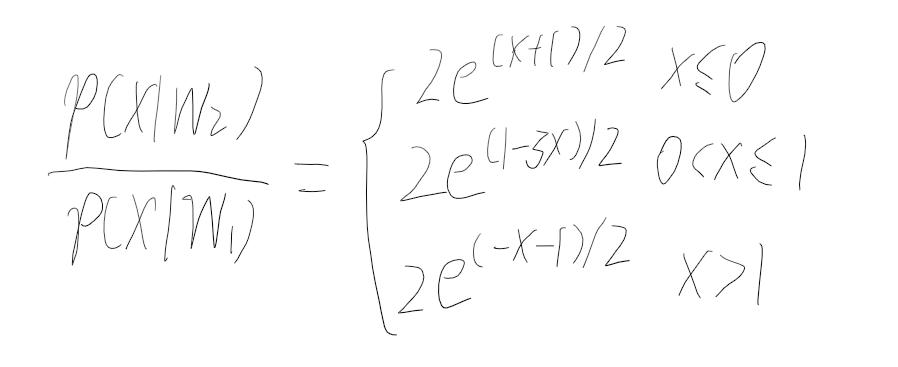 p(x|w₂) / p(x|w₁) = { 2e^{(x+1)/2} x≤0
2e^{(1-3x)/2} 0<x≤1
2e^{(-x-1)/2} x>1